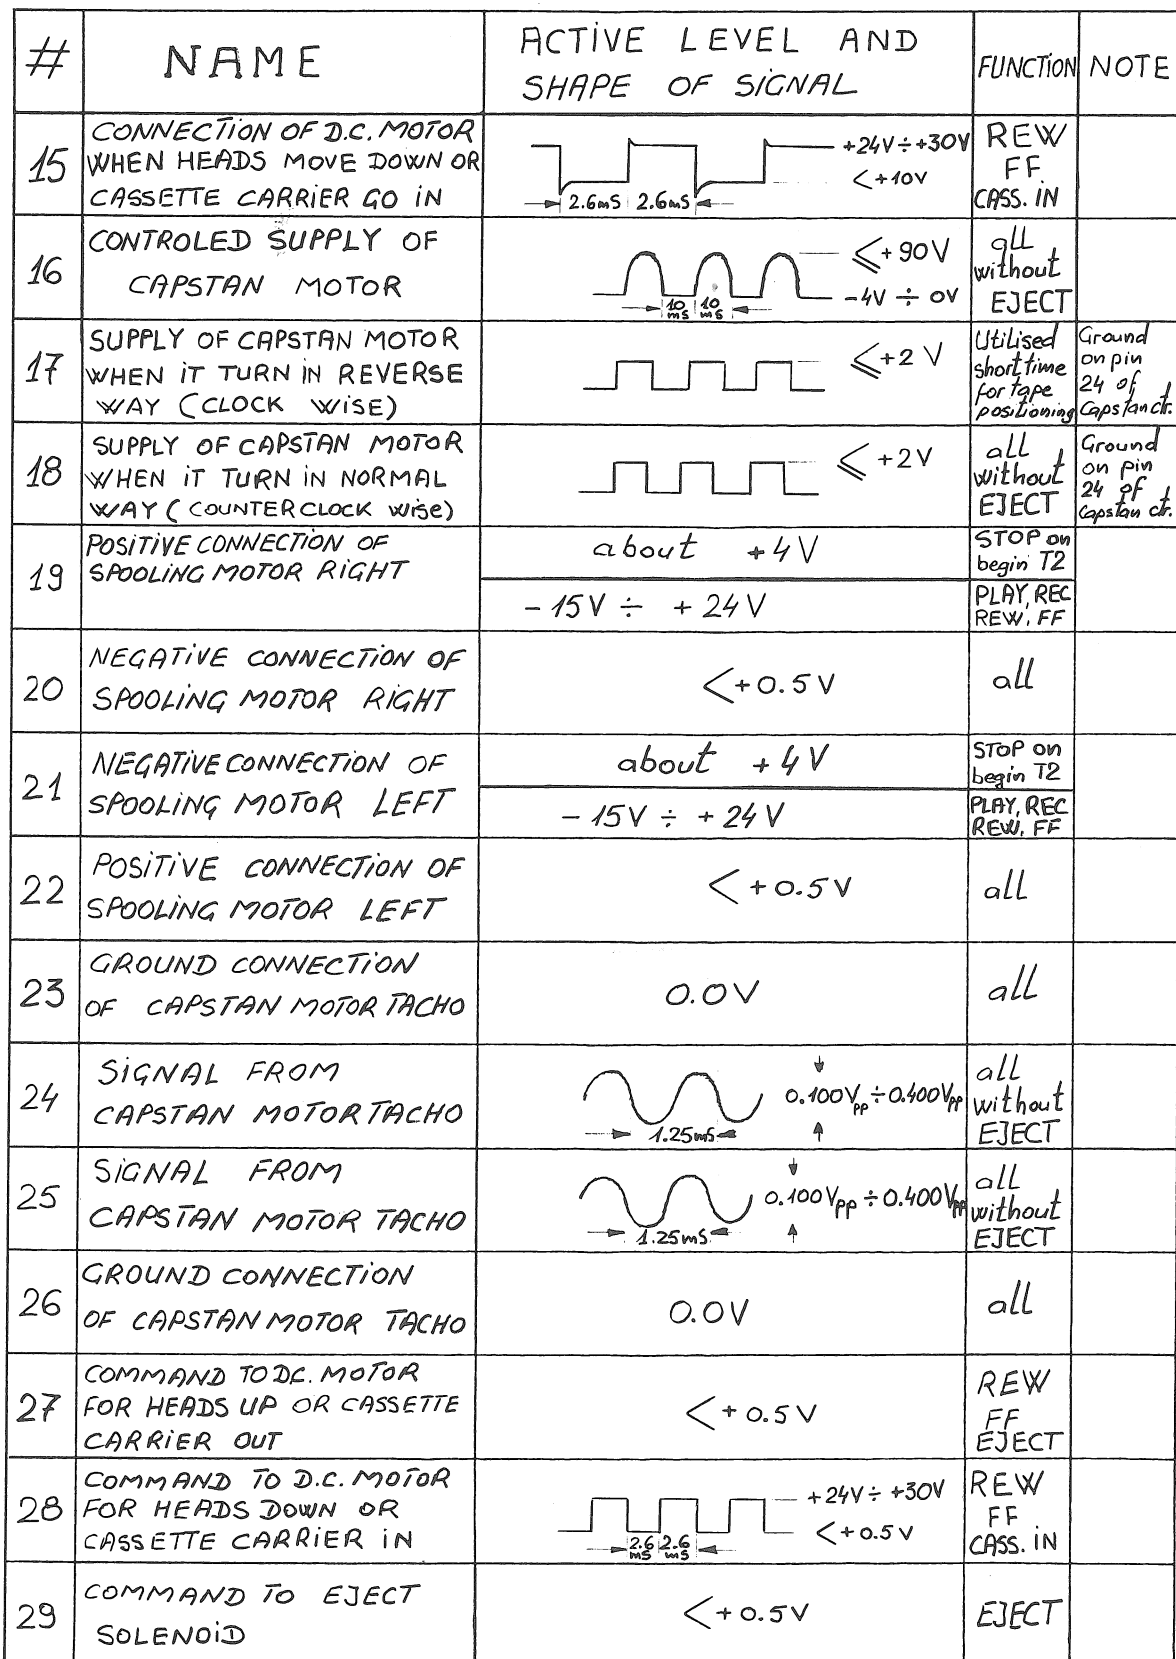 #
NAME
ACTIVE LEVEL AND
SHAPE OF SIGNAL
FUNCTION
NOTE
15
CONNECTION OF D.C. MOTOR
WHEN HEADS MOVE DOWN OR
CASSETTE CARRIER GO IN
+24V ÷ +30V
< +10V
2.6mS 2.6mS
REW
FF
CASS. IN
16
CONTROLED SUPPLY OF
CAPSTAN MOTOR
≤ +90V
-4V ÷ 0V
10 mS 10 mS
all
without
EJECT
17
SUPPLY OF CAPSTAN MOTOR
WHEN IT TURN IN REVERSE
WAY (CLOCK WISE)
≤ +2 V
Utilised
short time
for tape
positioning
Ground
on pin
24 of
Capstan ctr.
18
SUPPLY OF CAPSTAN MOTOR
WHEN IT TURN IN NORMAL
WAY (COUNTERCLOCK WISE)
≤ +2V
all
without
EJECT
Ground
on pin
24 of
Capstan ctr.
19
POSITIVE CONNECTION OF
SPOOLING MOTOR RIGHT
about +4V
STOP on
begin T2
-15V ÷ +24V
PLAY, REC
REW, FF
20
NEGATIVE CONNECTION OF
SPOOLING MOTOR RIGHT
< +0.5V
all
21
NEGATIVE CONNECTION OF
SPOOLING MOTOR LEFT
about +4V
STOP on
begin T2
-15V ÷ +24V
PLAY, REC
REW. FF
22
POSITIVE CONNECTION OF
SPOOLING MOTOR LEFT
< +0.5V
all
23
GROUND CONNECTION
OF CAPSTAN MOTOR TACHO
0.0V
all
24
SIGNAL FROM
CAPSTAN MOTOR TACHO
0.100Vpp ÷ 0.400Vpp
1.25mS
all
without
EJECT
25
SIGNAL FROM
CAPSTAN MOTOR TACHO
0.100Vpp ÷ 0.400Vpp
1.25mS
all
without
EJECT
26
GROUND CONNECTION
OF CAPSTAN MOTOR TACHO
0.0V
all
27
COMMAND TO DC. MOTOR
FOR HEADS UP OR CASSETTE
CARRIER OUT
< +0.5V
REW
FF
EJECT
28
COMMAND TO D.C. MOTOR
FOR HEADS DOWN OR
CASSETTE CARRIER IN
+24V ÷ +30V
< +0.5V
2.6 mS 2.6 mS
REW
FF
CASS. IN
29
COMMAND TO EJECT
SOLENOID
< +0.5V
EJECT